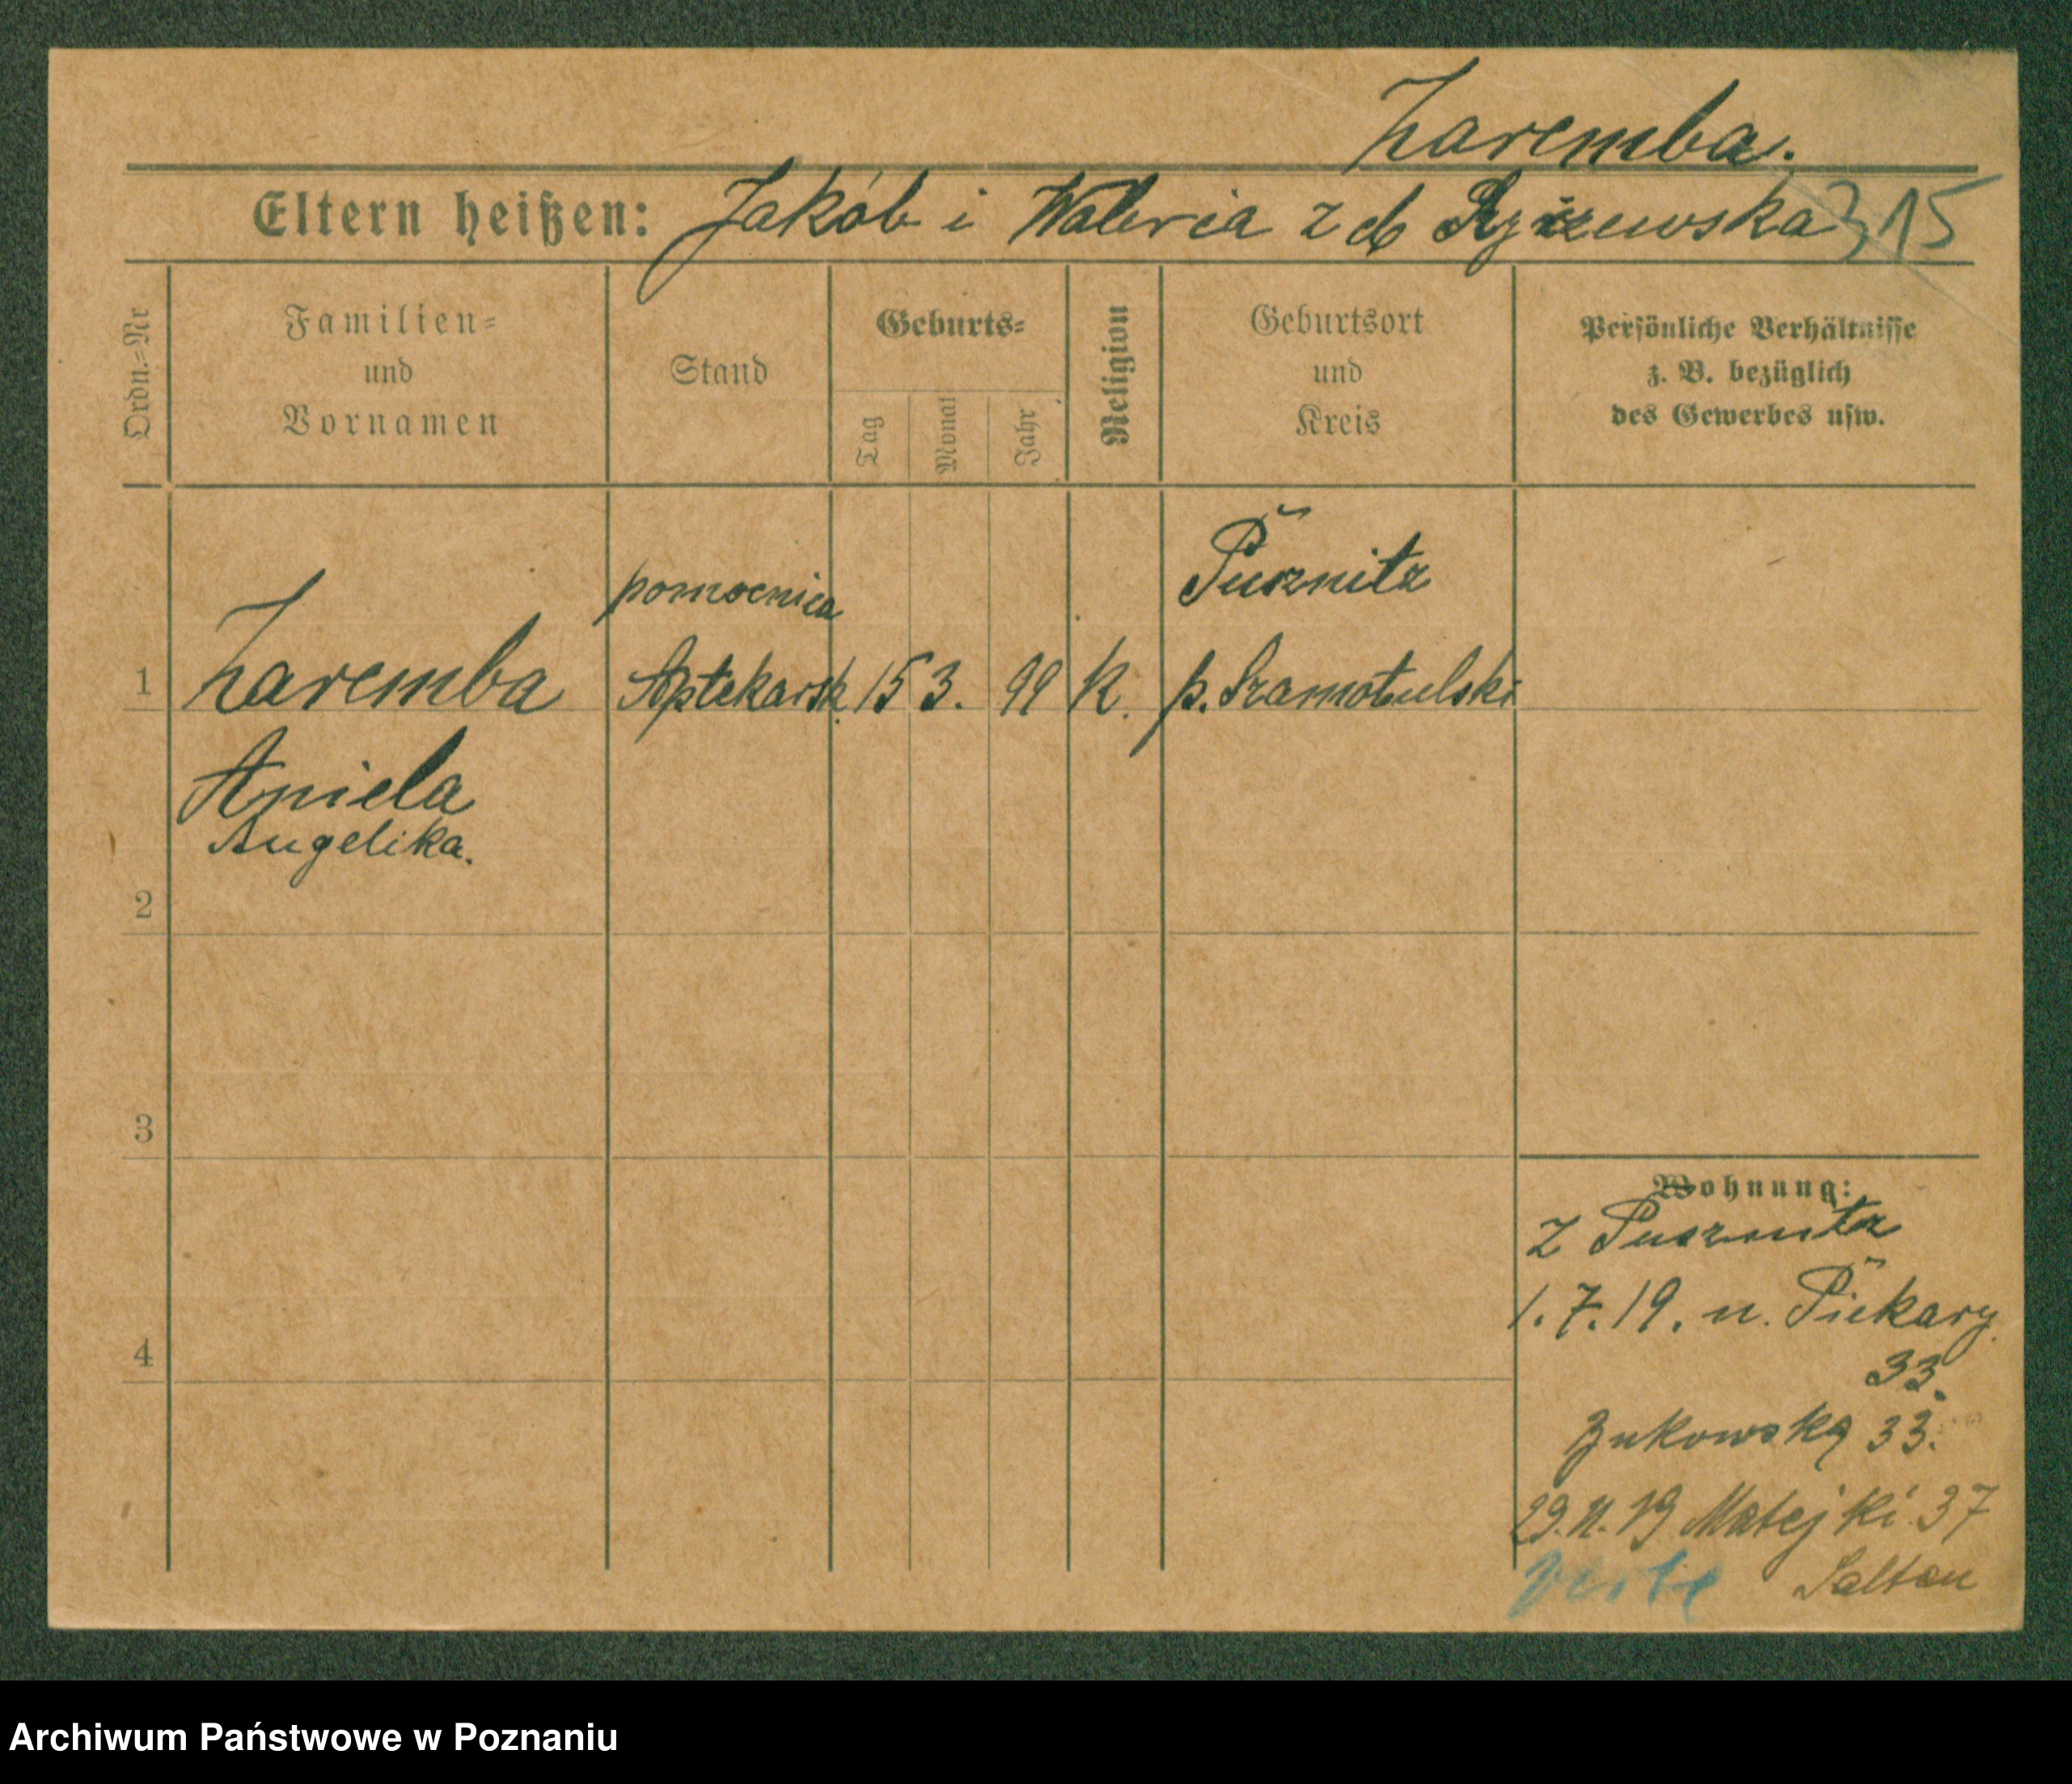 Zaremba.
Eltern heißen: Jakób i Waleria z d 315
Ordn.=Nr
Familien=
und
Vornamen
Stand
Geburts=
Tag
Monat
Jahr
Religion
Geburtsort
und
Kreis
Persönliche Verhältnisse
z. B. bezüglich
des Gewerbes usw.
1
Zaremba
Aniela
Angelika.
pomocnica
Aptekarsk.
15 3. 99 K.
p. Szamotulski
2
3
4
Wohnung:
Z
1.7.19. u. Piekary
33.
Bukowska 33.
29.11.19 Matejki 37
verte
Archiwum Państwowe w Poznaniu